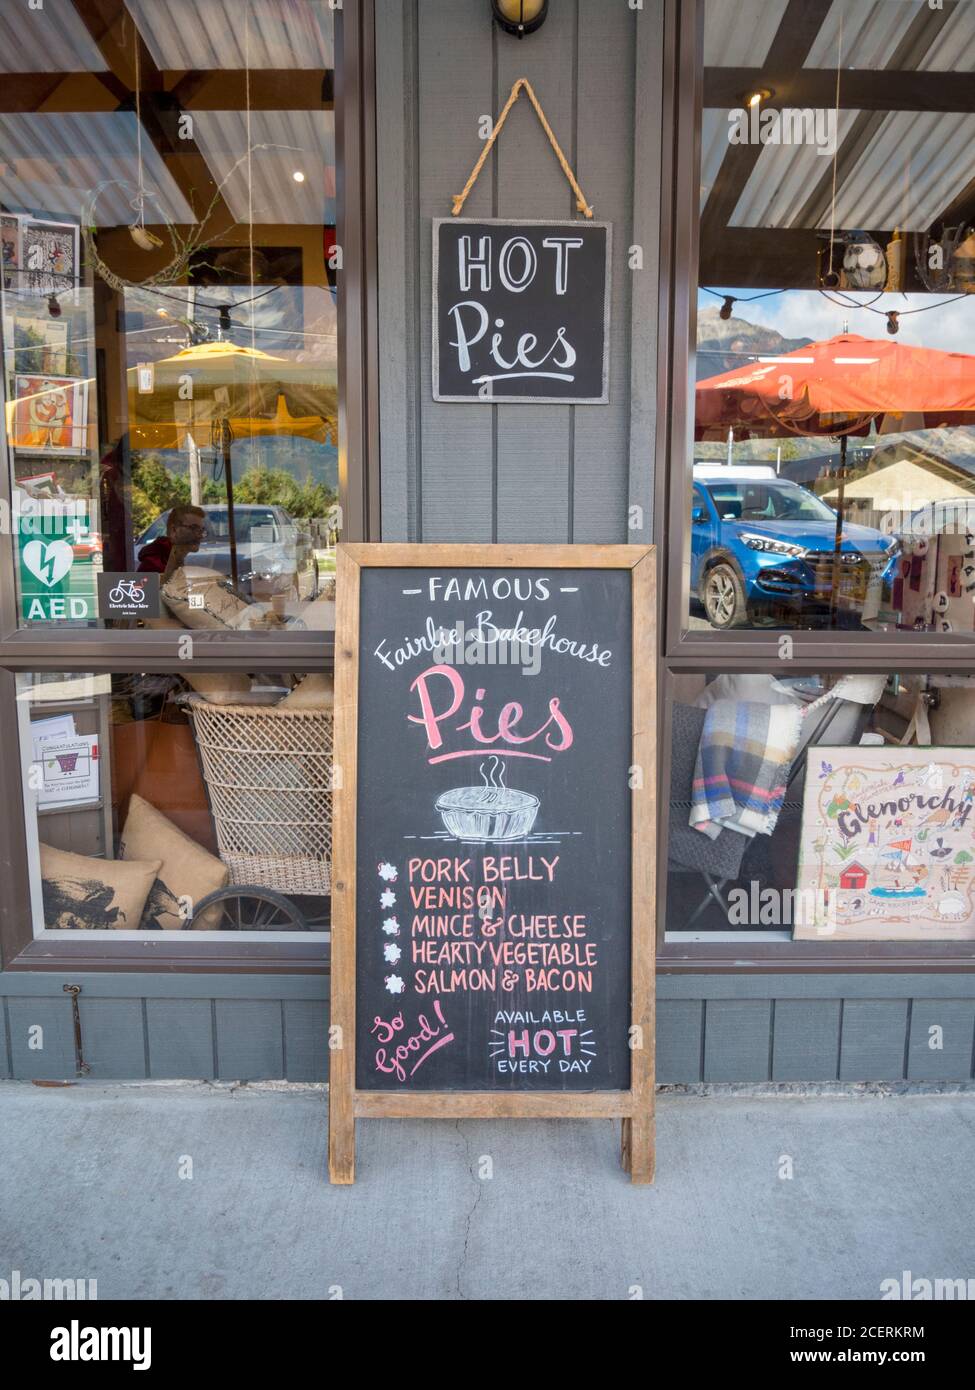 HOT
Pies
- FAMOUS -
Fairlie Bakehouse
Pies
PORK BELLY
VENISON
MINCE & CHEESE
HEARTY VEGETABLE
SALMON & BACON
So
Good!
AVAILABLE
HOT
EVERY DAY
AED
Electric bike hire
CONGRATULATIONS
Glenorchy
a
alamy
Image ID: 2CERKRM
www.alamy.com